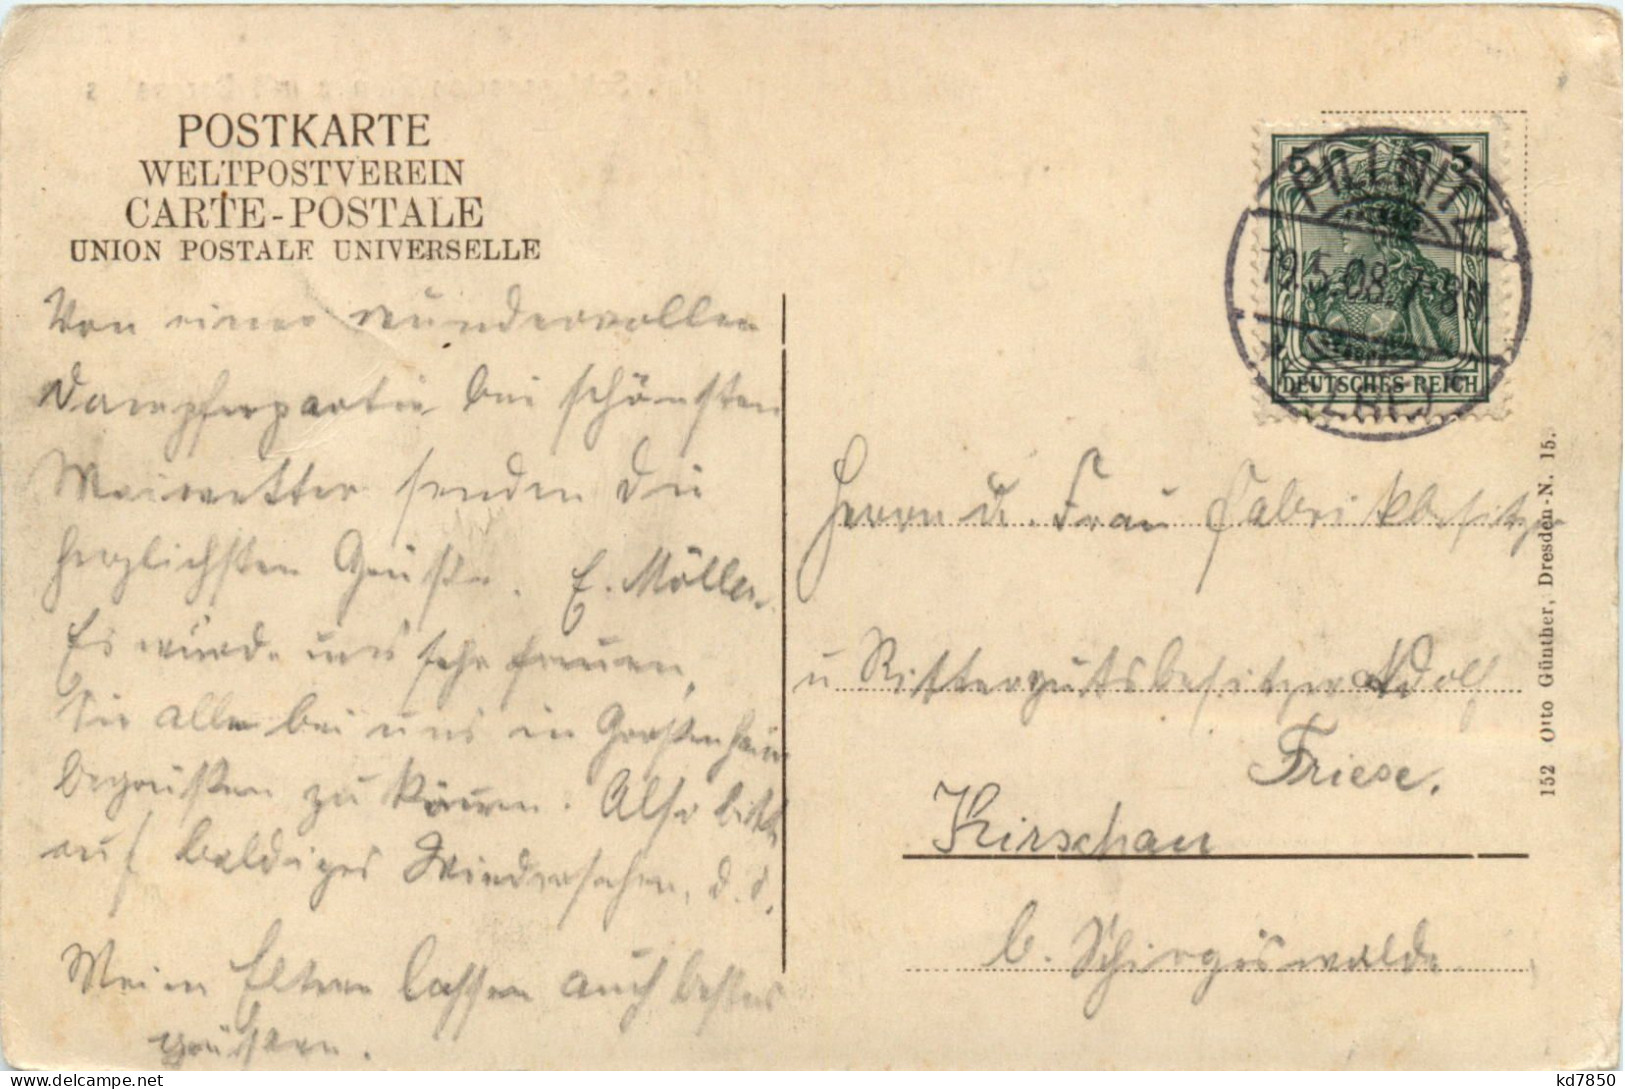 POSTKARTE
WELTPOSTVEREIN
CARTE-POSTALE
UNION POSTALE UNIVERSELLE
Von einer wundervollen
Dampferpartie bei schönsten
Maiwetter senden die
herzlichsten Grüße. E. Möller.
Es würde uns sehr freuen,
Sie alle bei uns in Großenhain
begrüßen zu können. Also bitte
auf baldiges Wiedersehen, d. O.
Mein Eltern lassen auch bestens
grüssen.
5 5
PILLNITZ
19.5.08.7-8N.
DEUTSCHES REICH
Herrn u. Frau Fabrikbesitzer
u Rittergutsbesitzer Adolf
Friese.
Kirschau
b. Schirgiswalde
152 Otto Günther, Dresden-N. 15.
kd7850